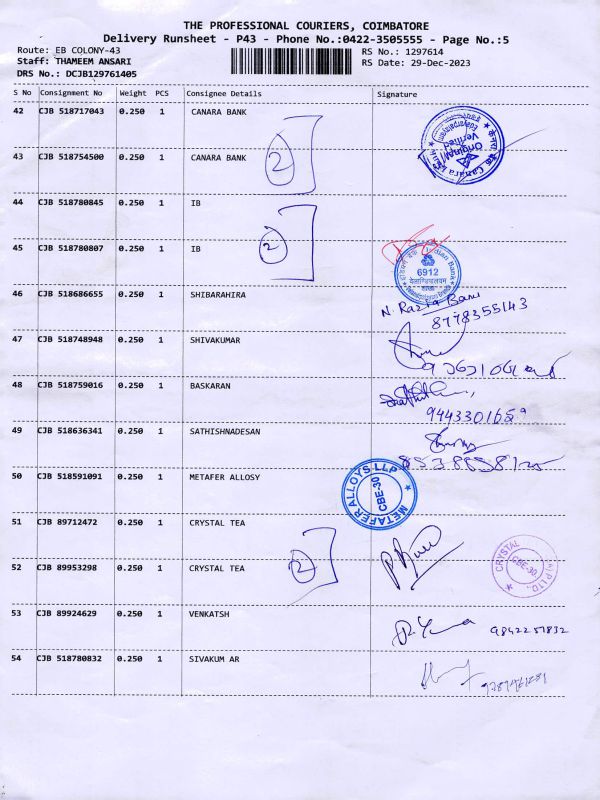 THE PROFESSIONAL COURIERS, COIMBATORE
Delivery Runsheet - P43 - Phone No.:0422-3505555 - Page No.:5
Route: EB COLONY-43
RS No.: 1297614
Staff: THAMEEM ANSARI
RS Date: 29-Dec-2023
DRS No.: DCJB129761405
S No Consignment No Weight PCS Consignee Details Signature
42 CJB 518717043 0.250 1 CANARA BANK
2
Original Verified
Canara Bank
43 CJB 518754500 0.250 1 CANARA BANK
44 CJB 518780845 0.250 1 IB
2
45 CJB 518780807 0.250 1 IB
Indian Bank
6912
46 CJB 518686655 0.250 1 SHIBARAHIRA
N. Razia Banu
8778355143
47 CJB 518748948 0.250 1 SHIVAKUMAR
48 CJB 518759016 0.250 1 BASKARAN
9443301659
49 CJB 518636341 0.250 1 SATHISHNADESAN
50 CJB 518591091 0.250 1 METAFER ALLOSY
METAFER ALLOYS LLP
CBE-30
51 CJB 89712472 0.250 1 CRYSTAL TEA
2
52 CJB 89953298 0.250 1 CRYSTAL TEA
CRYSTAL
CBE-30
53 CJB 89924629 0.250 1 VENKATSH
9842257832
54 CJB 518780832 0.250 1 SIVAKUM AR